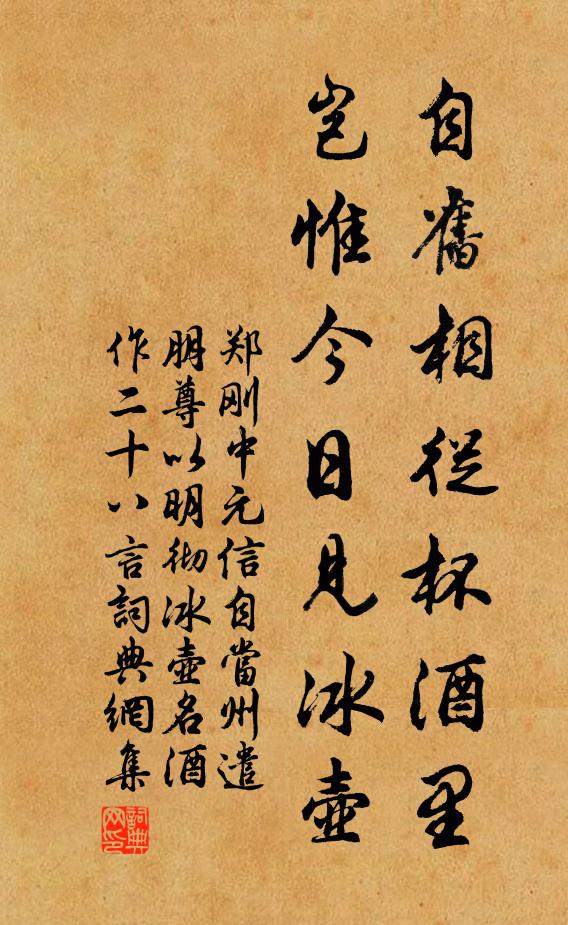 自舊相從杯酒里
岂惟今日見冰壺
郑刚中元信自當州遣
朋尊以明彻冰壺名酒
作二十八言詞典網集
詞典网印